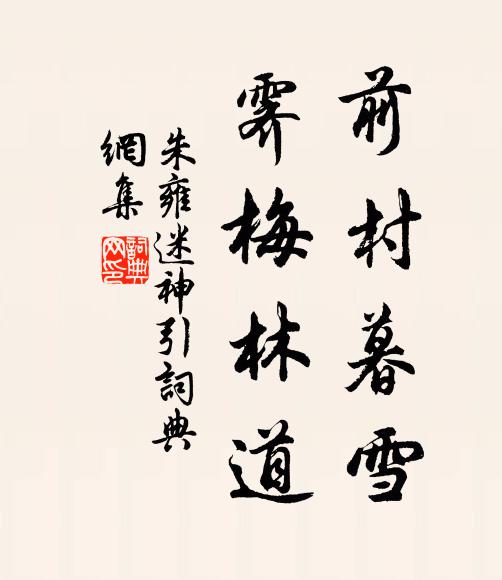 前村暮雪
霽梅林道
朱雍迷神引詞典
網集
詞典
网印